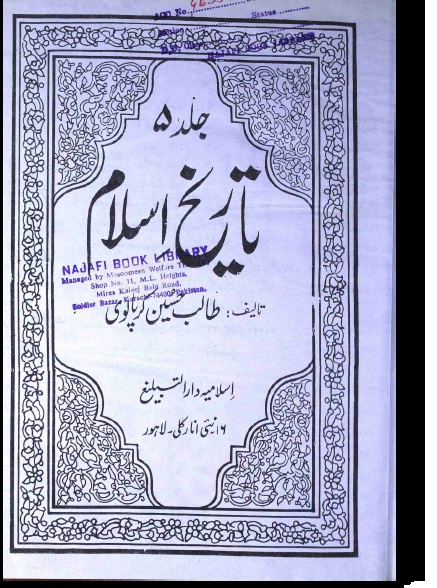 ACC No.
Status
NAJAFI BOOK LIBRARY
جلد ۵
تاریخ اسلام
NAJAFI BOOK LIBRARY
Managed by Masoomeen Welfare T
Shop No. 11, M.L. Heights,
Mirza Kaleej Baig Road,
Soldier Bazar, Karachi-74400, Pakistan.
تالیف: طالب حسین کرپالوی
اسلامیہ دارالتبلیغ
۱۶ نئی انارکلی۔ لاہور